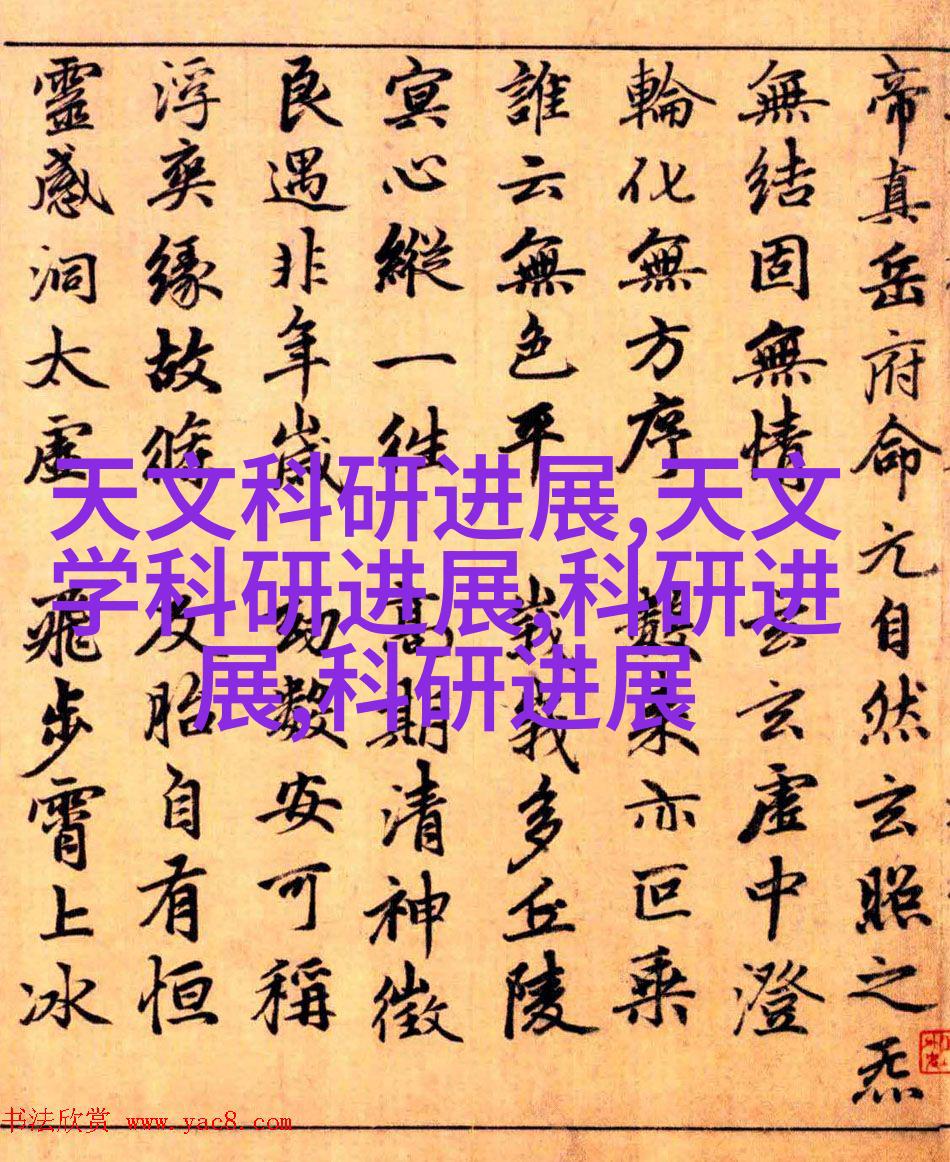 帝真岳府命元自然玄照之炁
無結固無情 玄玄虛中澄
輪化無方序 數來亦叵乘
誰云無色平 峩峩多丘陵
冥心縱一往 高期清神徵
良遇非年歲 劫數安可稱
浮爽緣故條 反胎自有恒
靈感洞太虛 飛步霄上冰
天文科研进展,天文
学科研进展,科研进
展,科研进展
书法欣赏 www.yac8.com